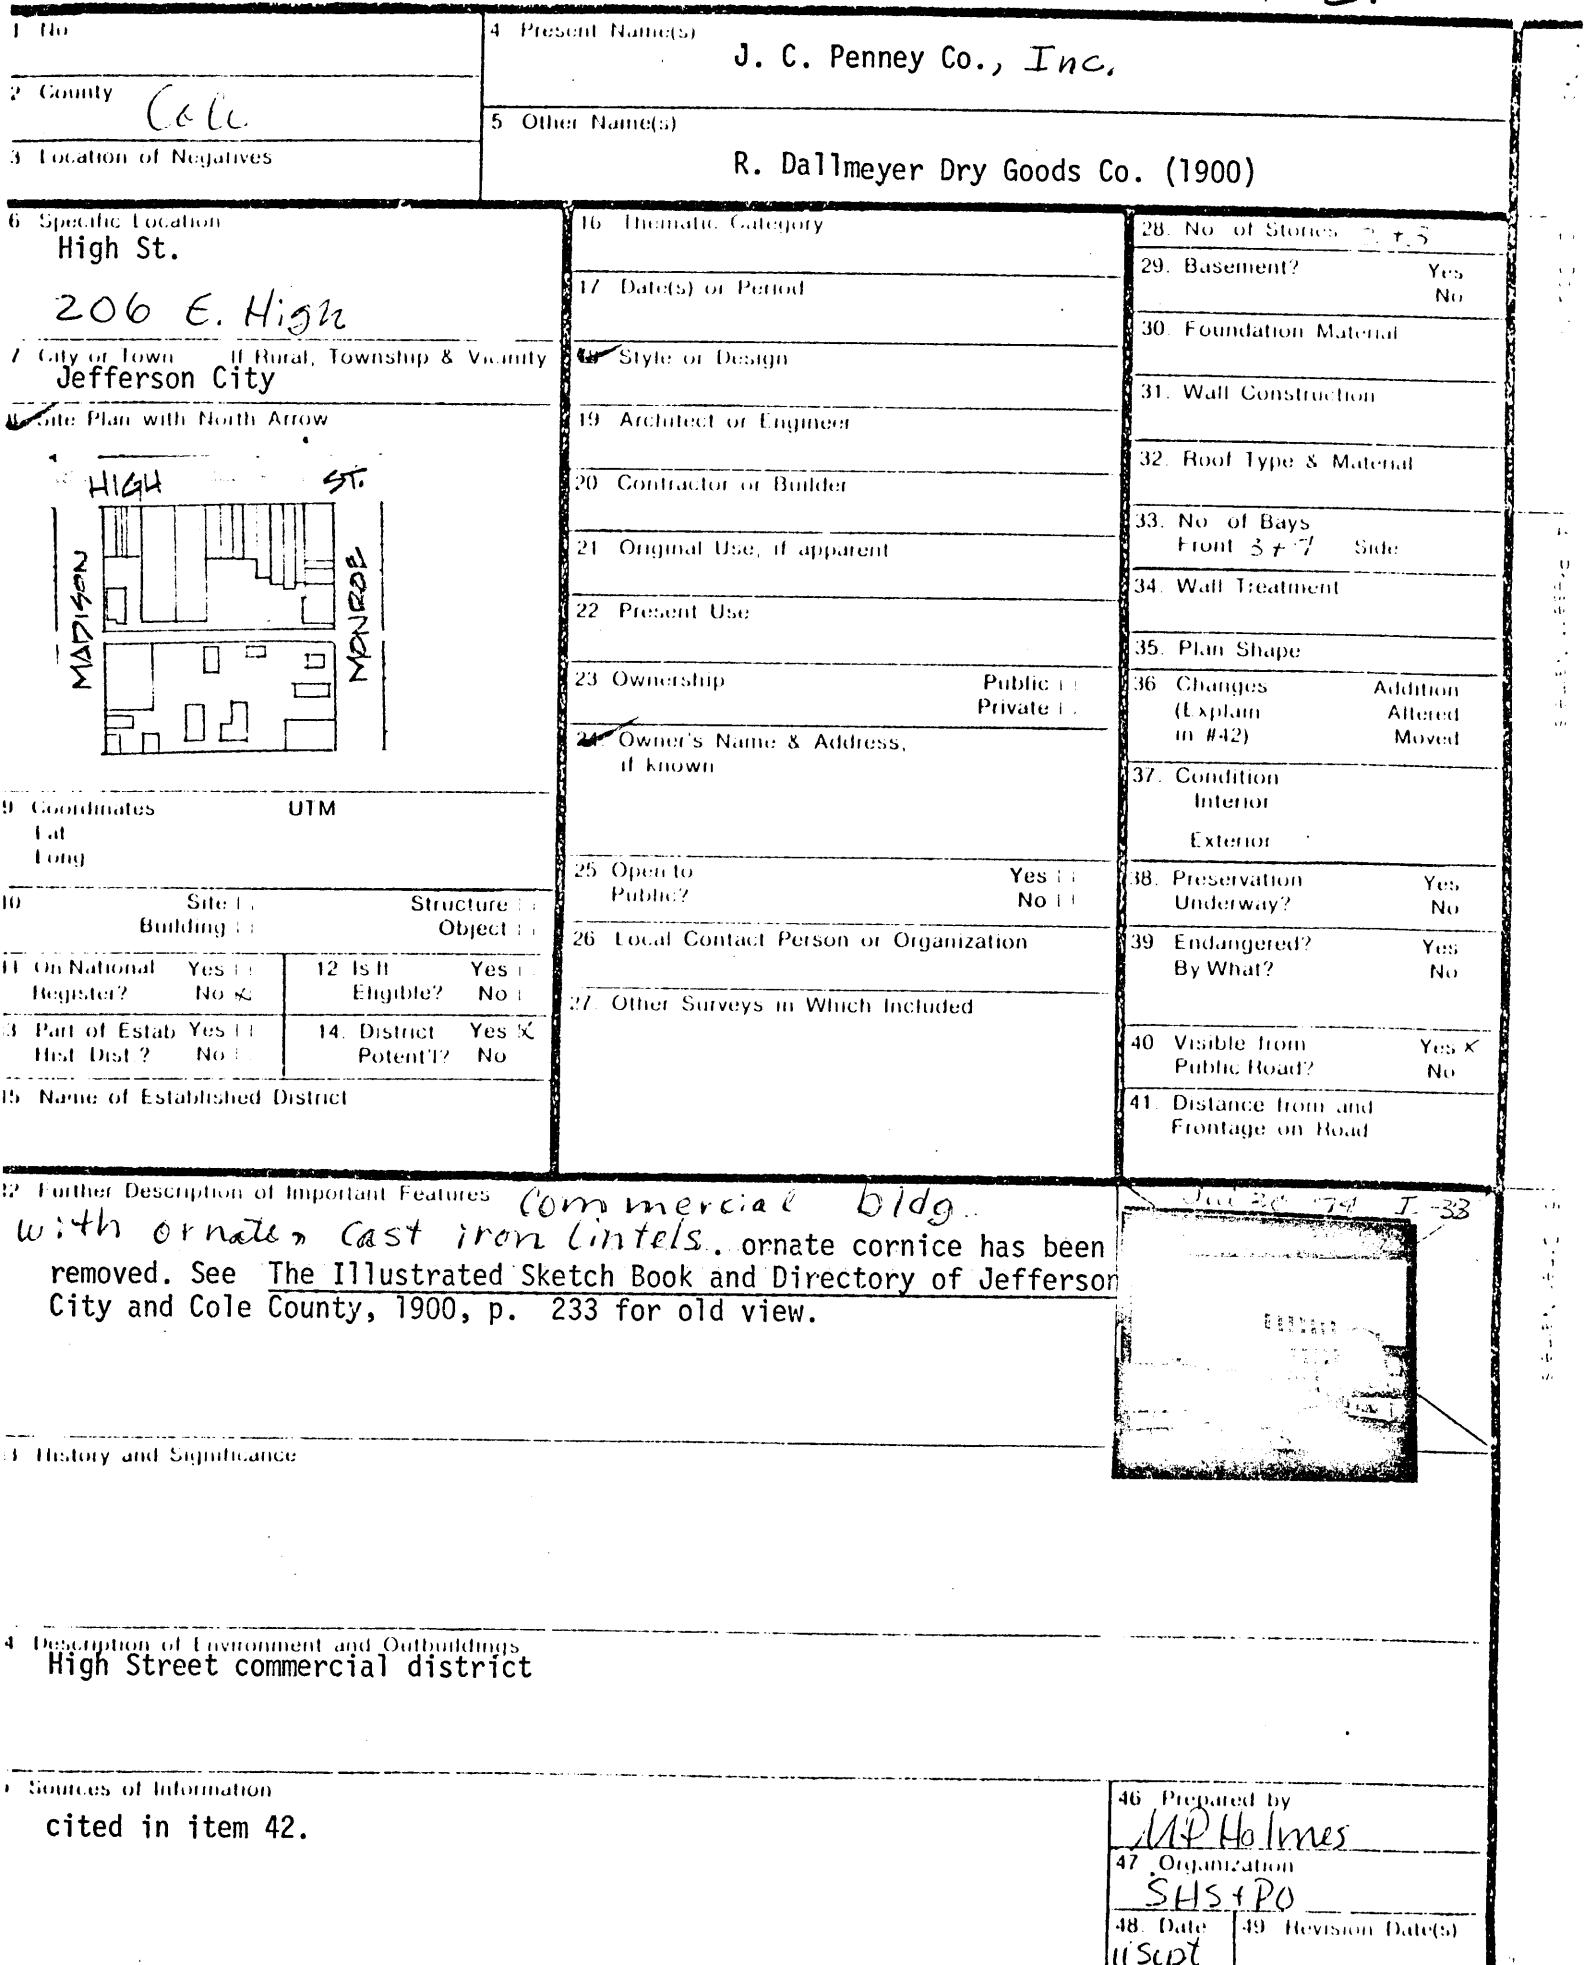 1 No
4 Present Name(s)
J. C. Penney Co., Inc.
2 County
Cole
5 Other Name(s)
R. Dallmeyer Dry Goods Co. (1900)
3 Location of Negatives
6 Specific Location
High St.
206 E. High
7 City or Town If Rural, Township & Vicinity
Jefferson City
Site Plan with North Arrow
HIGH ST.
MADISON
MONROE
9 Coordinates UTM
Lat
Long
10 Site Structure
Building Object
11 On National Yes
Register? No X
12 Is It Yes
Eligible? No
3 Part of Estab Yes
Hist Dist ? No
14. District Yes X
Potent'l? No
15 Name of Established District
16 Thematic Category
17 Date(s) or Period
Style or Design
19 Architect or Engineer
20 Contractor or Builder
21 Original Use, if apparent
22 Present Use
23 Ownership Public
Private
24. Owner's Name & Address,
if known
25 Open to Yes
Public? No
26 Local Contact Person or Organization
27. Other Surveys in Which Included
28. No of Stories
29. Basement? Yes
No
30. Foundation Material
31. Wall Construction
32. Roof Type & Material
33. No of Bays
Front 3 + 7 Side
34. Wall Treatment
35. Plan Shape
36 Changes Addition
(Explain Altered
in #42) Moved
37. Condition
Interior
Exterior
38. Preservation Yes
Underway? No
39 Endangered? Yes
By What? No
40 Visible from Yes X
Public Road? No
41. Distance from and
Frontage on Road
12 Further Description of Important Features Commercial bldg.
with ornate, cast iron lintels. ornate cornice has been
removed. See The Illustrated Sketch Book and Directory of Jefferson
City and Cole County, 1900, p. 233 for old view.
3 History and Significance
4 Description of Environment and Outbuildings
High Street commercial district
Sources of Information
cited in item 42.
46 Prepared by
MP Holmes
47 Organization
SHS+PO
48. Date
11 Sept
49 Revision Date(s)